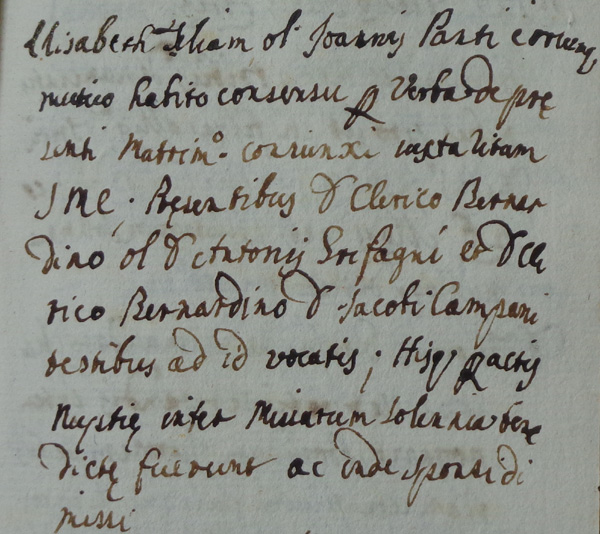 Elisabeth.am filiam ol. Joannis Panti eorumq
mutuo habito consensu p Verba de prę
senti Matrim.o coniunxi iuxta Ritum
S M E; Pręsentibus D Clerico Bernar
dino ol D Antonij et D Cle
rico Bernardino D Jacobi Campani
testibus ad id vocatis; Hisq pactis
Nuptię inter Missarum solemnia bene
dictę fuerunt ac inde sponsi di
missi